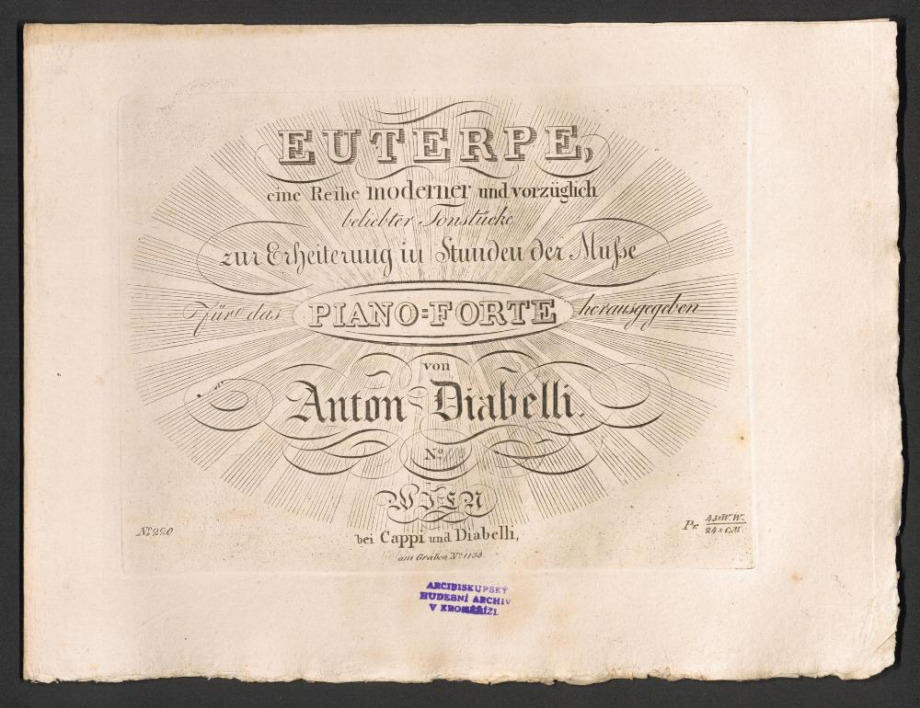 EUTERPE,
eine Reihe moderner und vorzüglich
beliebter Tonstücke
zur Erheiterung in Stunden der Muſse
Für das PIANO=FORTE herausgegeben
von
Anton Diabelli.
No.
WIEN
No. 220
bei Cappi und Diabelli,
am Graben No. 1133.
Pr.
ARCIBISKUPSKÝ
HUDEBNÍ ARCHIV
V KROMĚŘÍŽI.